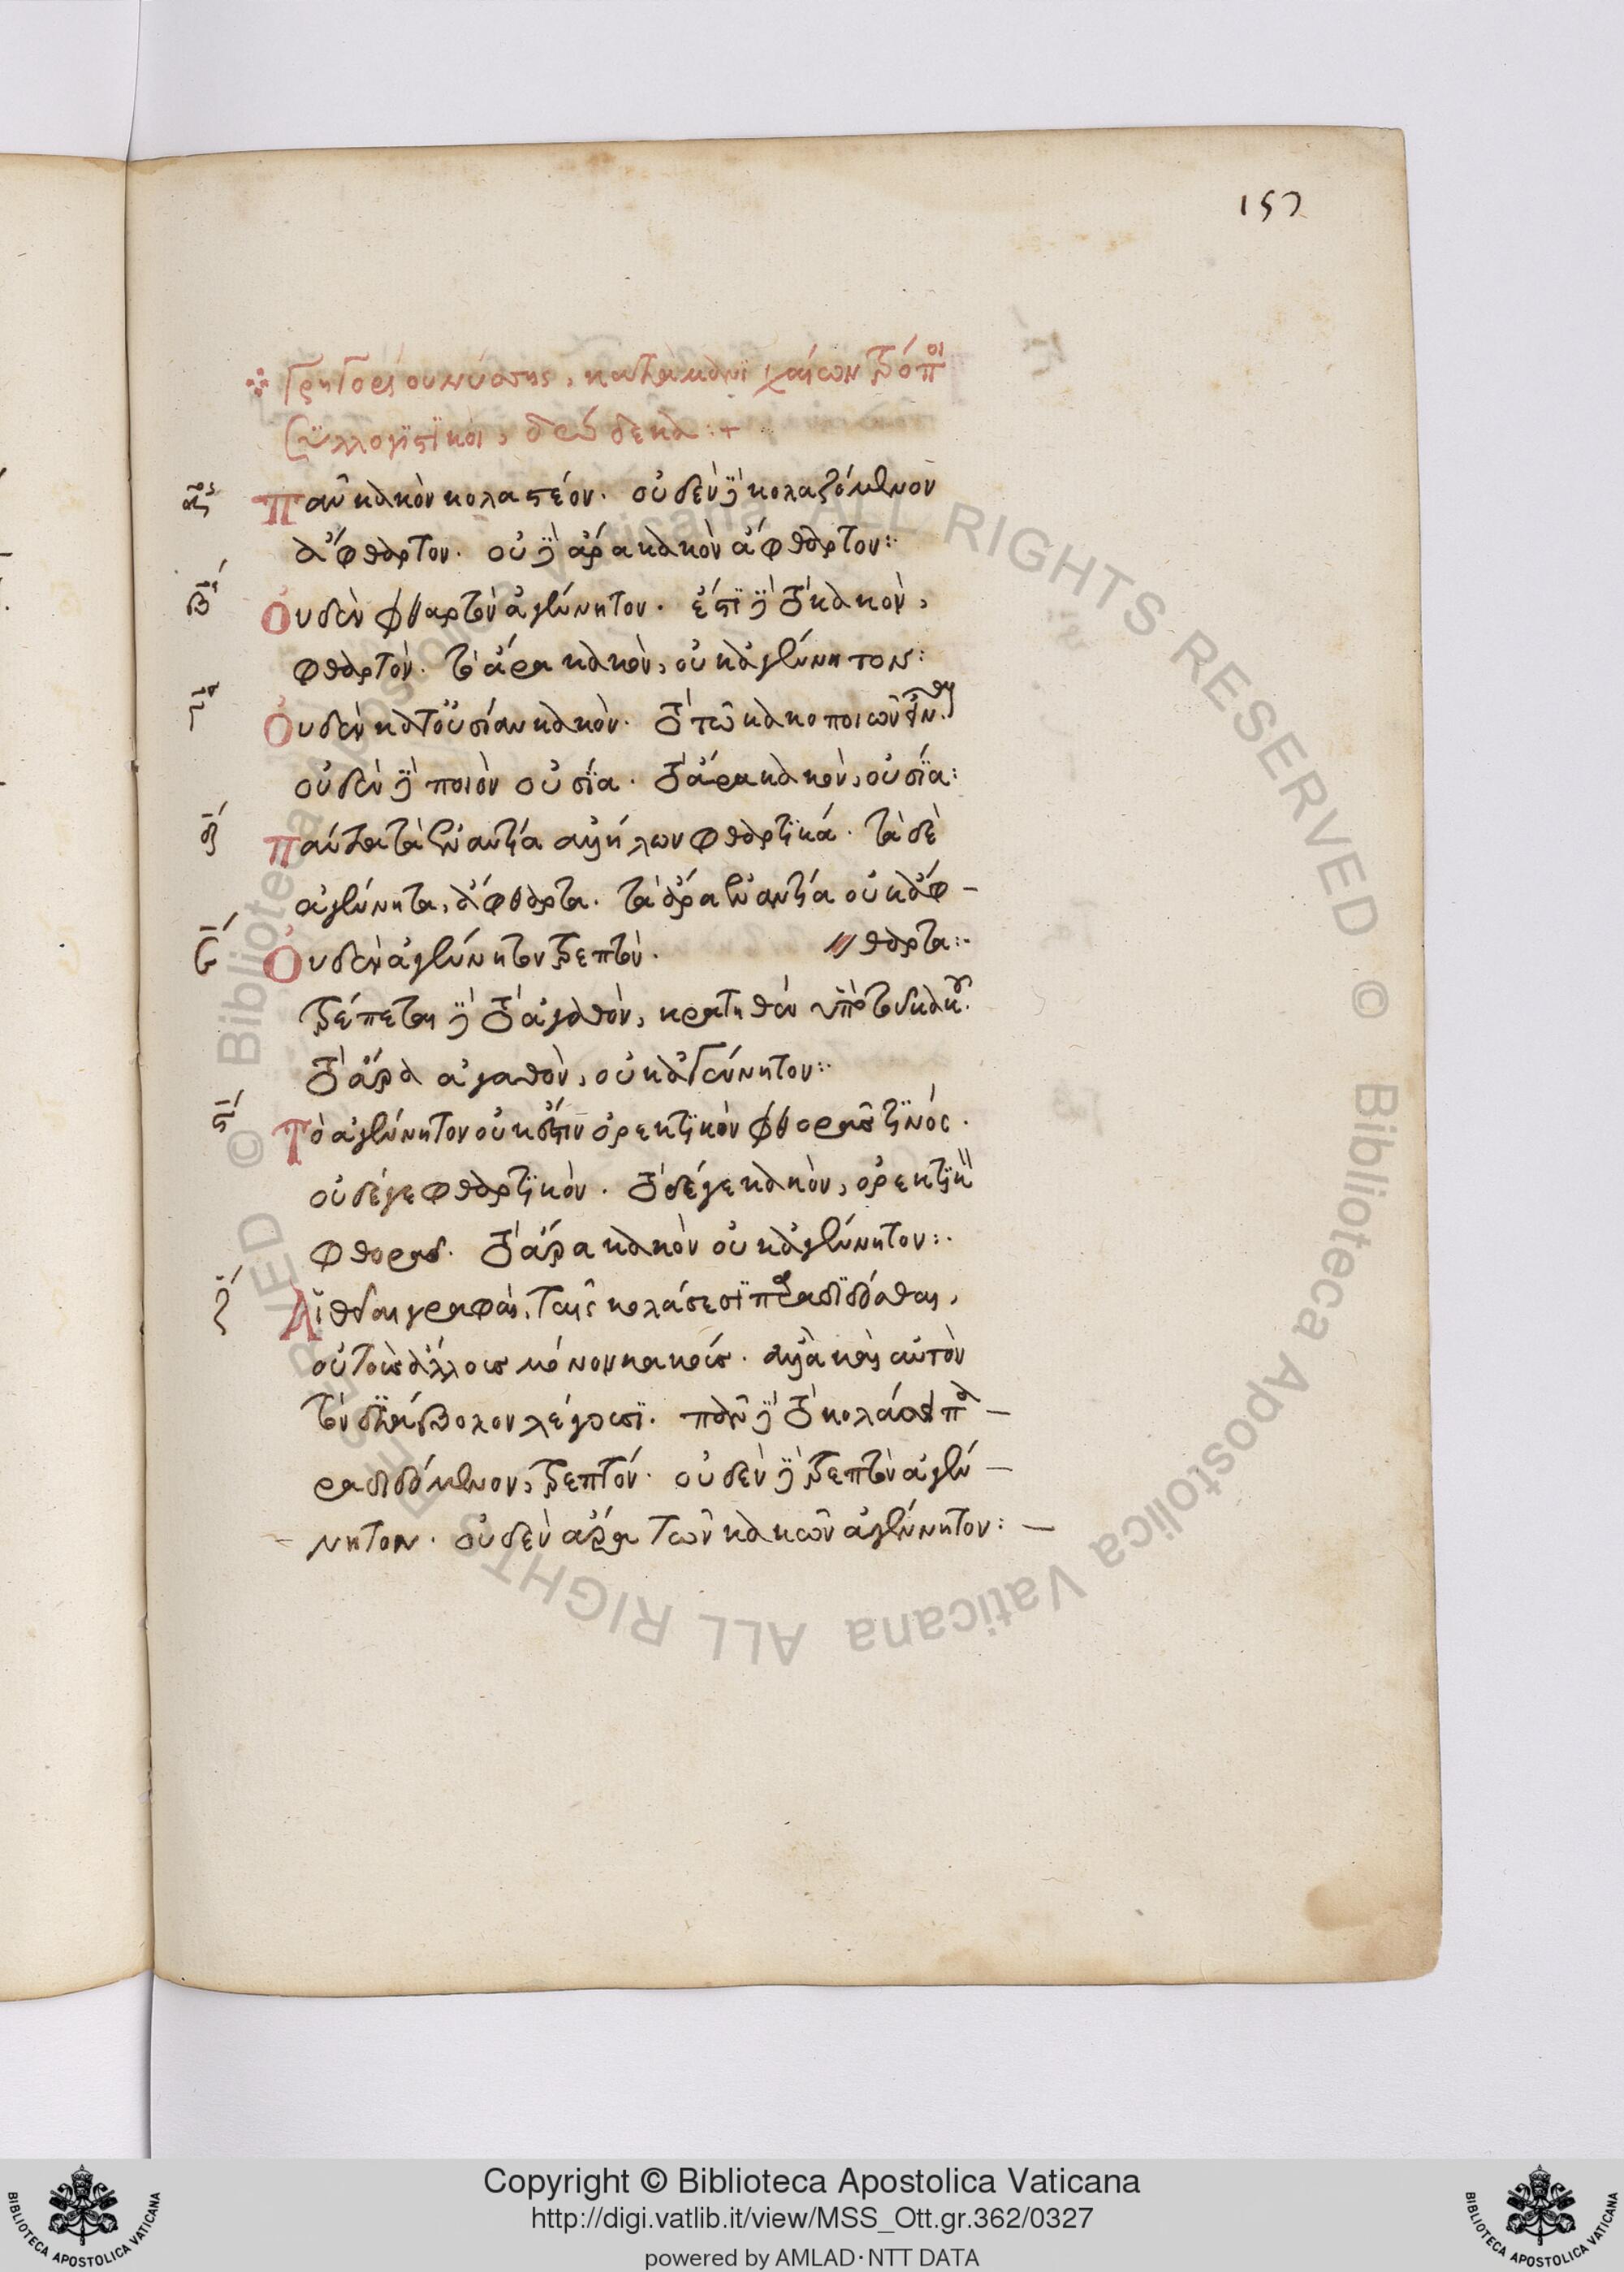 157
Γρηγορίου νύσσης, κατὰ μανιχαίων τρόποι
συλλογιστικοὶ, δώδεκα:+
α΄ος Πᾶν κακὸν κολαστέον. οὐδὲν δὲ κολαζόμενον
ἄφθαρτον. οὐδὲ ἄρα κακὸν ἄφθαρτον:
β΄ Οὐδὲν φθαρτὸν ἀγέννητον. ἔστι δὲ τὸ κακὸν,
φθαρτόν. τὸ ἄρα κακὸν, οὐκ ἀγέννητον:
γ΄ Οὐδὲν κατ' οὐσίαν κακόν. τὸ τῶ κακοποιῶν
οὐδὲν δὲ ποιὸν οὐσία. τὸ ἄρα κακὸν, οὐσία:
δ΄ Πάντα τὰ ἐναντία ἀλλήλων φθαρτικά. τὰ δὲ
ἀγέννητα, ἄφθαρτα. τὰ ἄρα ἐναντία οὐκ ἄφ-
θαρτα:
ε΄ Οὐδὲν ἀγέννητον τρεπτόν.
τρέπεται δὲ τὸ ἀγαθὸν, κρατηθὲν ὑπὸ τοῦ κακοῦ.
τὸ ἄρα ἀγαθὸν, οὐκ ἀγέννητον:
ς΄ Τὸ ἀγέννητον οὐκ ἔστιν ὀρεκτικὸν φθορᾶς τινός.
οὐδέ γε φθαρτικόν. τὸ δέ γε κακὸν, ὀρεκτικὸν
φθορᾶς. τὸ ἄρα κακὸν οὐκ ἀγέννητον:
ζ΄ Αἱ θεῖαι γραφαὶ, ταῖς κολάσεσι παραδίδοσθαι,
οὐ τοὺς ἄλλους μόνον κακούς. ἀλλὰ καὶ αὐτὸν
τὸν διάβολον λέγουσι. πᾶν δὲ τὸ κολάσει πα-
ραδιδόμενον, τρεπτόν. οὐδὲν δὲ τρεπτὸν ἀγέν-
νητον. οὐδὲν ἄρα τῶν κακῶν ἀγέννητον:
Copyright © Biblioteca Apostolica Vaticana
http://digi.vatlib.it/view/MSS_Ott.gr.362/0327
powered by AMLAD·NTT DATA
BIBLIOTECA APOSTOLICA VATICANA
BIBLIOTECA APOSTOLICA VATICANA
© Biblioteca Apostolica Vaticana ALL RIGHTS RESERVED © Biblioteca Apostolica Vaticana ALL RIGHTS RESERVED